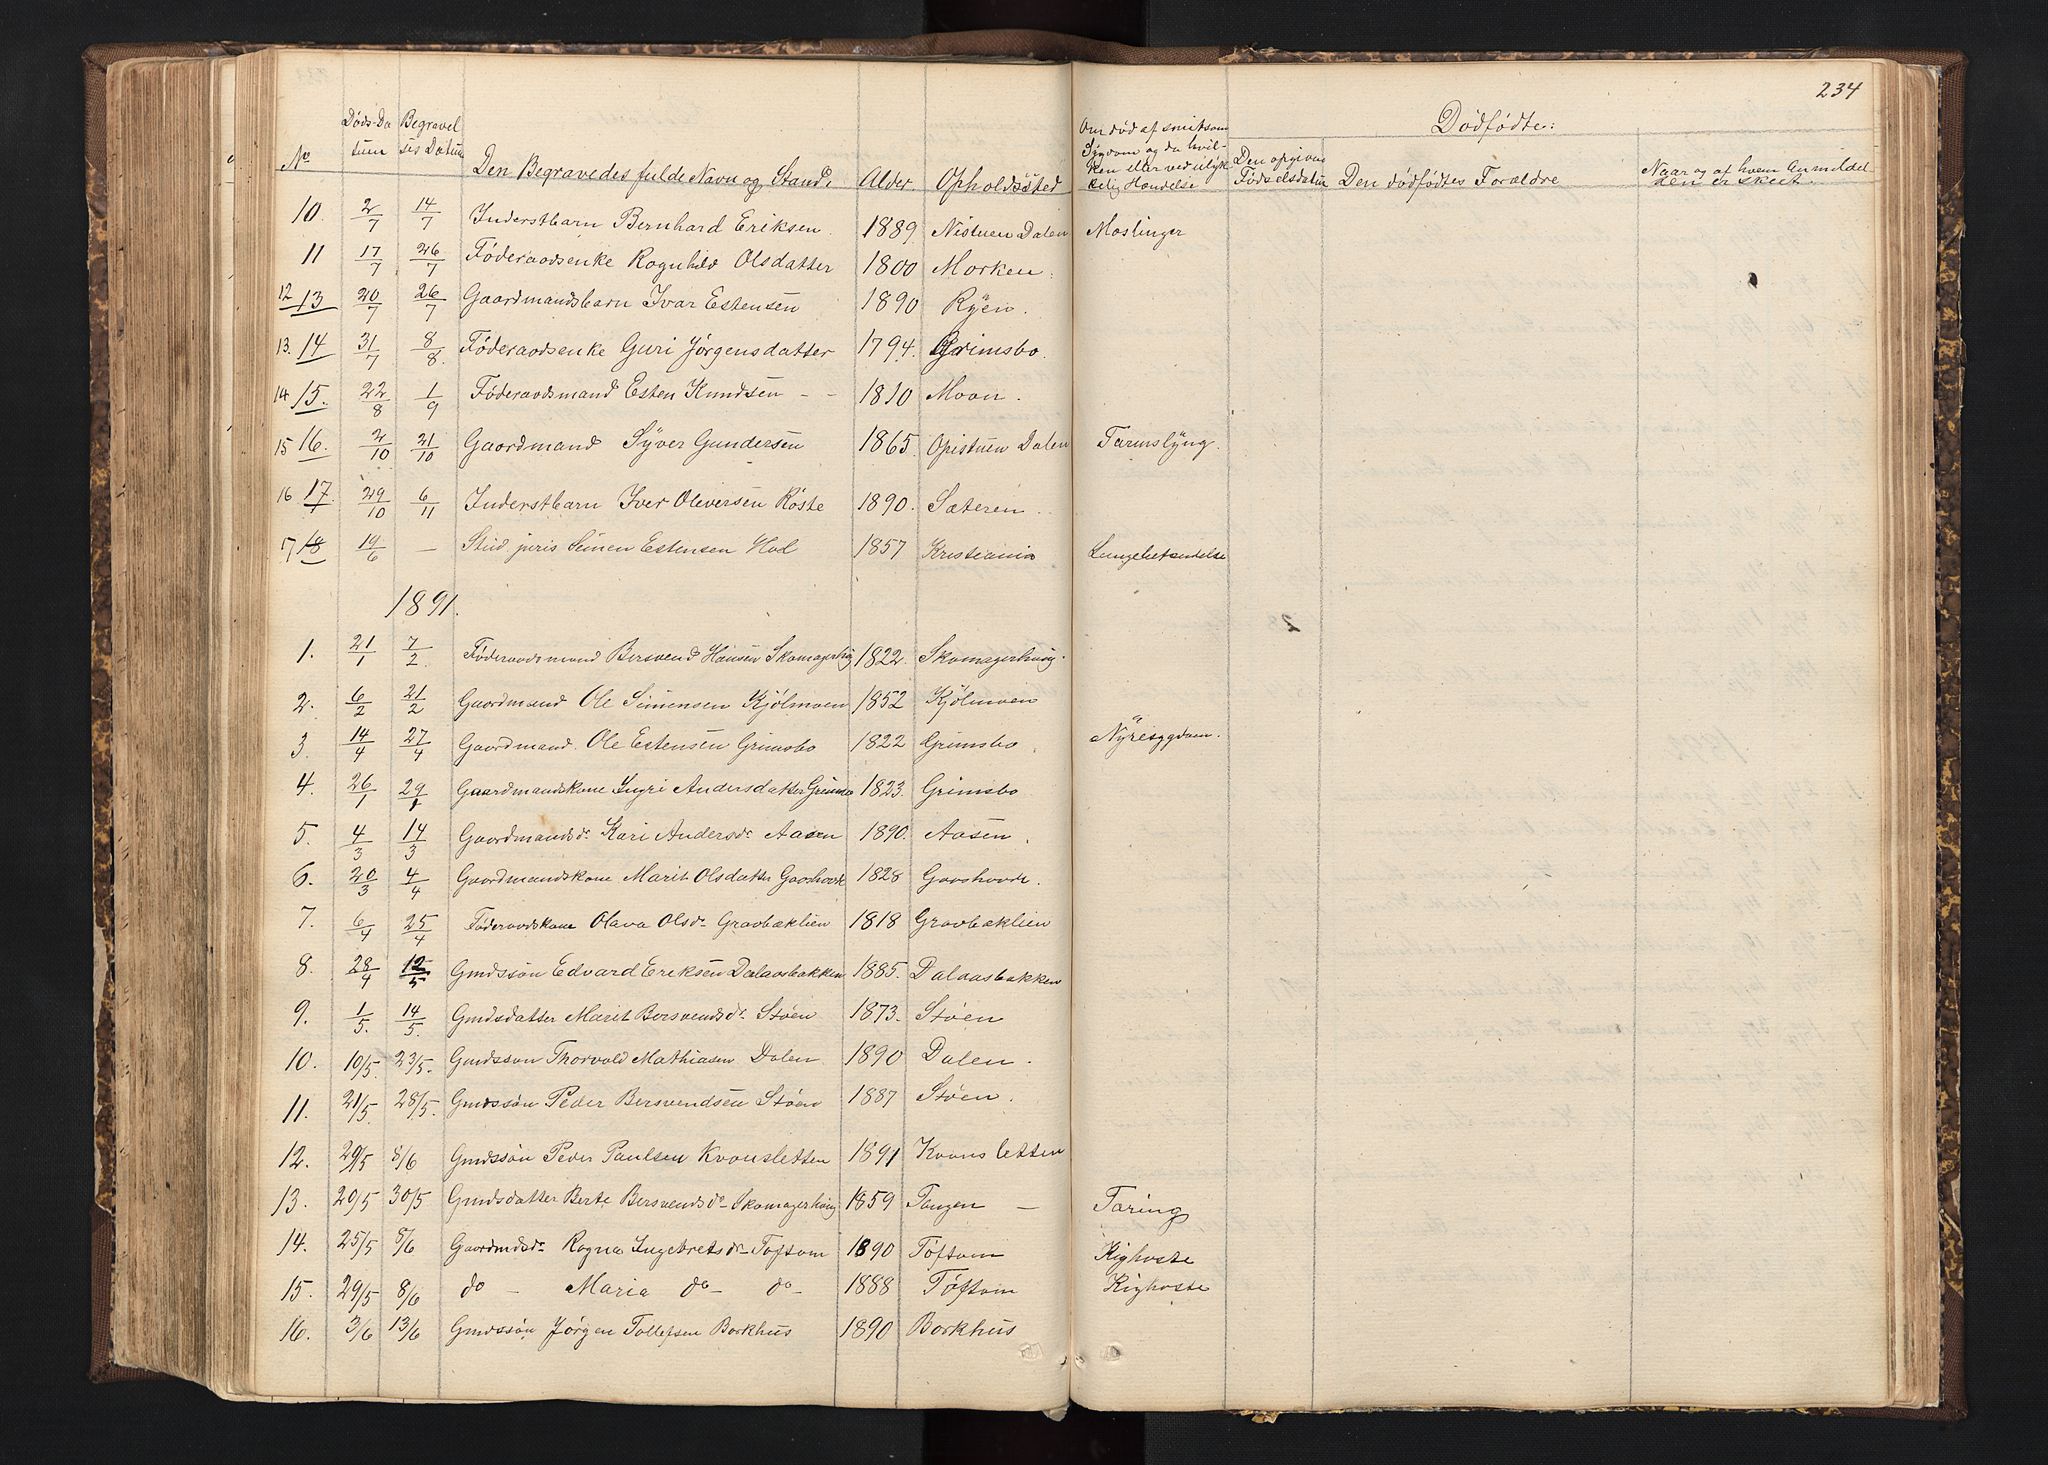 234
Døds-Da Begravel Om død af smitsom Dødfødte:
tum ses Datum Sygdom og da hvil- Den opgivne Naar og af hvem Anmeldel
No Den Begravedes fulde Navn og Stand. Alder. Opholdssted ken eller ved ulyk- Fødselsdatum Den dødfødtes Forældre den er skeet.
kelig Hændelse
10. 2/7 14/7 Inderstbarn Bernhard Eriksen. 1889 Nistuen Dalen Meslinger
11 17/7 26/7 Føderaadsenke Ragnhild Olsdatter 1800 Morken.
12 13 20/7 26/7 Gaardmandsbarn Ivar Estensen 1890 Ryen.
13. 14 31/7 8/8. Føderaadsenke Guri Jørgensdatter 1794. Grimsbo.
14 15. 22/8 1/9 Føderaadsmand Esten Knudsen - - 1810 Moan.
15 16. 2/10 21/10 Gaardmand Syver Gundersen 1865. Opistuen Dalen Tarmslyng.
16 17. 29/10 6/11 Inderstbarn Iver Oleversen Røste 1890. Sæteren.
17 18 19/6 — Stud. juris Simen Estensen Hol 1857 Kristiania Lungebetændelse
1891.
1. 21/1 7/2. Føderaadsmand Bersvend Hansen Skomagerhaug 1822. Skomagerhaug.
2. 6/2 21/2 Gaardmand Ole Simensen Kjølmoen 1852 Kjølmoen
3. 14/4 27/4 Gaardmand. Ole Estensen Grimsbo 1822 Grimsbo. Nyresygdom.
4. 26/1 29/1 Gaardmandskone Ingri Andersdatter Grimsbo 1823. Grimsbo
5. 4/3 14/3 Gaardmandsdr Kari Andersdr Aasen 1890. Aasen.
6. 20/3 4/4 Gaardmandskone Marit Olsdatter Gaashovde 1828 Gaashovde.
7. 6/4 25/4 Føderaadskone Olava Olsdr Gravbæklien 1818 Gravbæklien
8. 28/4 12/5 Gmdssøn Edvard Eriksen Dalaasbakken 1885. Dalaasbakken
9. 1/5. 14/5. Gmdsdatter Marit Bersvendsdr Støen 1873. Støen
10. 10/5. 23/5. Gmdsson Thorvald Mathiasen Dalen 1890 Dalen.
11. 21/5. 28/5. Gmdssøn Peder Bersvendsen Støen 1887 Støen.
12. 29/5 8/6 Gmdssøn Peder Paulsen Kvansletten 1891 Kvansletten
13. 20/5 30/5 Gmdsdatter Berte Bersvendsdr Skomagerhaug 1859 Tangen — Tæring
14. 25/5 8/6 Gaardmdsdr Ragna Ingebretsdr Toftom 1890 Tøftom Kighoste
15. 29/5 8/6 do - Maria do - do - 1888 Tøftom Kighoste
16. 3/6 13/6 Gmdssøn Jørgen Tollefsen Borkhus 1890 Borkhus